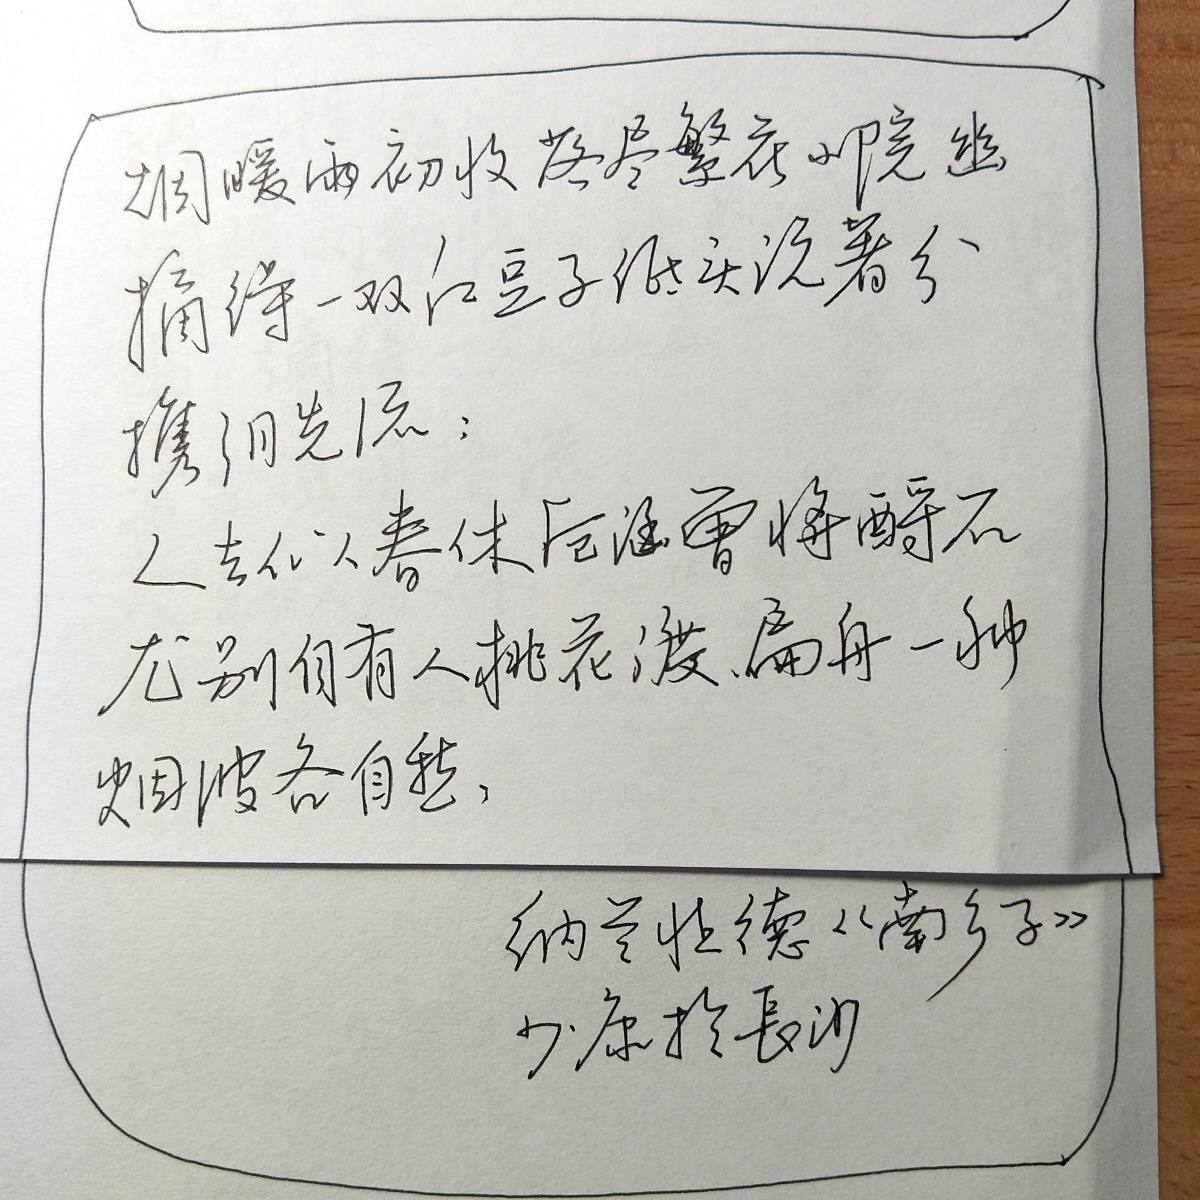 烟暖雨初收落尽繁花小院幽
摘得一双红豆子低头说著分
携泪先流：
人去似春休卮酒曾将酹石
尤别自有人桃花渡、扁舟一种
烟波各自愁，
纳兰性德《南乡子》
少康于長沙